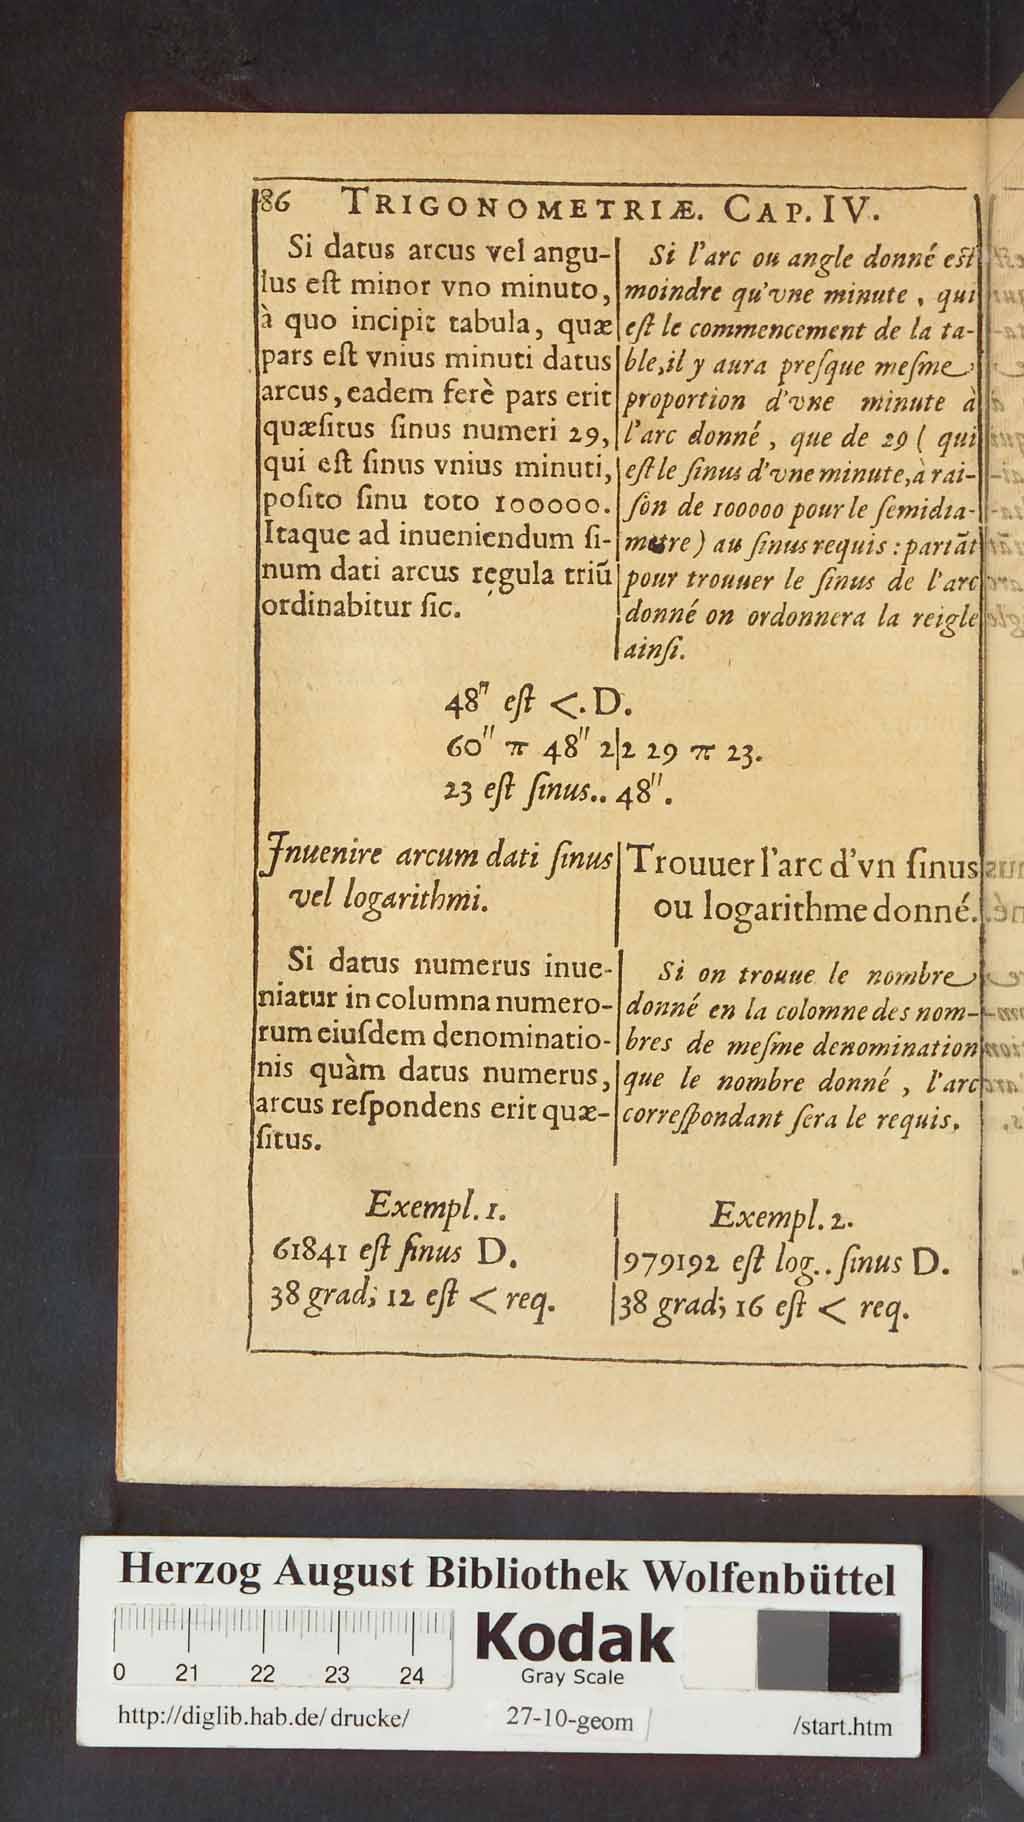 86 TRIGONOMETRIÆ. CAP. IV.
Si datus arcus vel angu-
lus eſt minor vno minuto,
à quo incipit tabula, quæ
pars eſt vnius minuti datus
arcus, eadem ferè pars erit
quæſitus ſinus numeri 29,
qui eſt ſinus vnius minuti,
poſito ſinu toto 100000.
Itaque ad inueniendum ſi-
num dati arcus regula triū
ordinabitur ſic.
Si l'arc ou angle donné eſt
moindre qu'vne minute, qui
eſt le commencement de la ta-
ble, il y aura preſque meſme
proportion d'vne minute à
l'arc donné, que de 29 ( qui
eſt le ſinus d'vne minute, à rai-
ſon de 100000 pour le ſemidia-
metre) au ſinus requis : partāt
pour trouuer le ſinus de l'arc
donné on ordonnera la reigle
ainſi.
48" eſt <. D.
60" π 48" 2|2 29 π 23.
23 eſt ſinus.. 48".
Inuenire arcum dati ſinus
vel logarithmi.
Trouuer l'arc d'vn ſinus
ou logarithme donné.
Si datus numerus inue-
niatur in columna numero-
rum eiuſdem denominatio-
nis quàm datus numerus,
arcus reſpondens erit quæ-
ſitus.
Si on trouue le nombre
donné en la colomne des nom-
bres de meſme denomination
que le nombre donné, l'arc
correſpondant ſera le requis.
Exempl. 1.
61841 eſt ſinus D.
38 grad; 12 eſt < req.
Exempl. 2.
979192 eſt log.. ſinus D.
38 grad; 16 eſt < req.
Herzog August Bibliothek Wolfenbüttel
0 21 22 23 24
Kodak
Gray Scale
http://diglib.hab.de/drucke/ 27-10-geom /start.htm